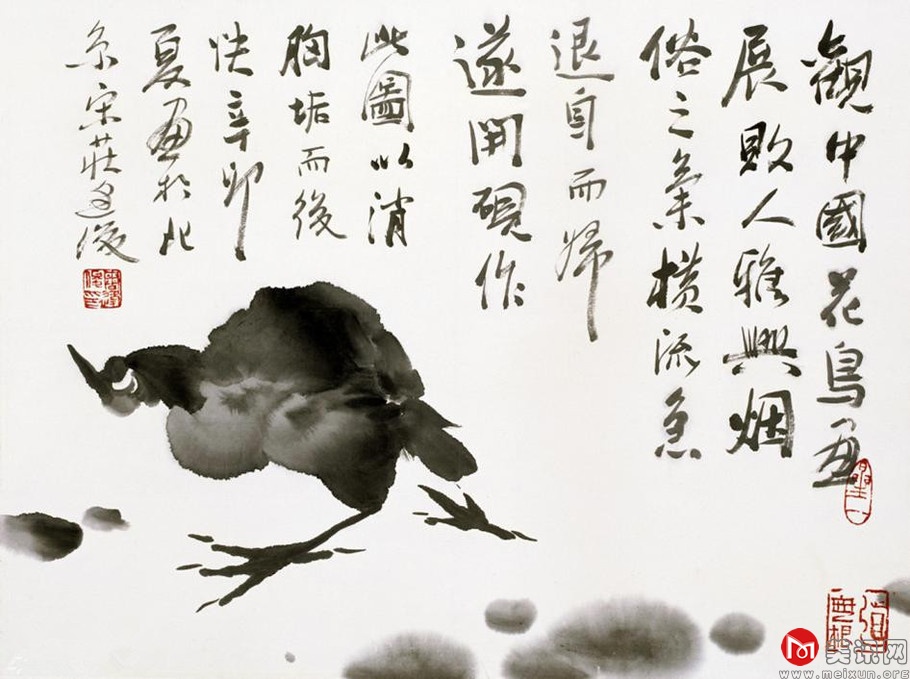 觀中國花鳥画
展敗人雅興烟
俗之氣横流急
退自而歸
遂開硯作
此圖以消
胸垢而後
快辛卯
夏画於北
京宋莊
美讯网
www.meixun.org